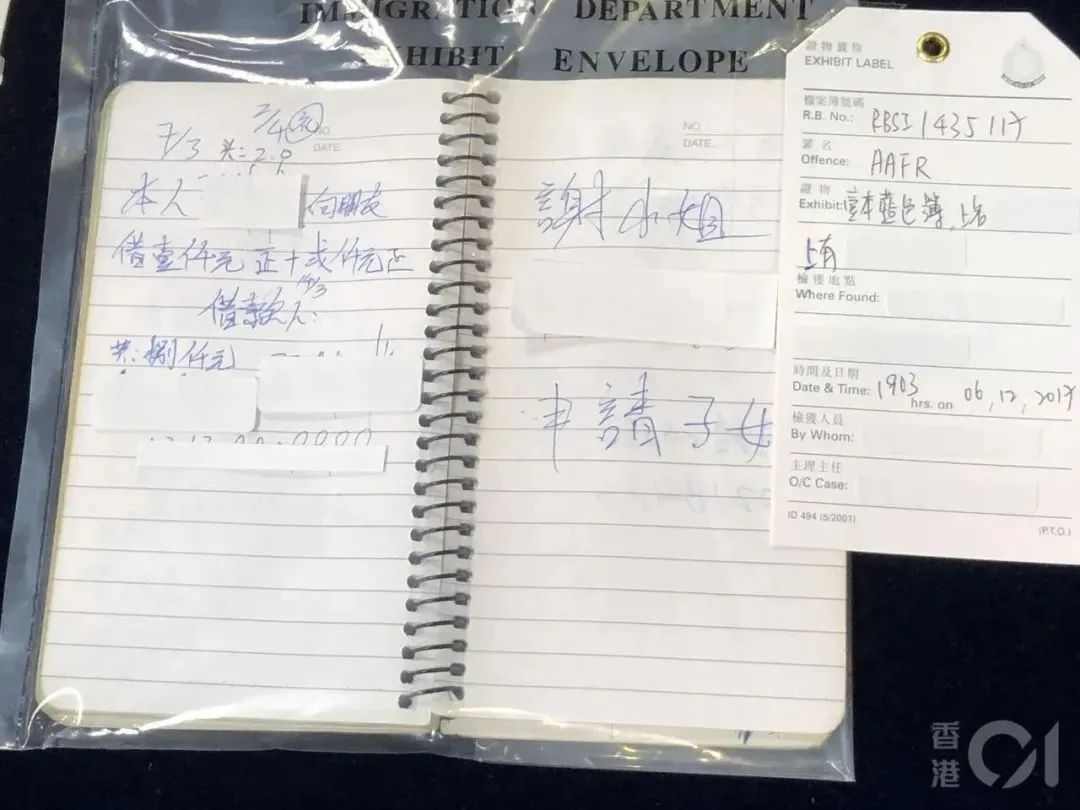 IMMIGRATION DEPARTMENT
EXHIBIT ENVELOPE
2/4
NO.
7/3 共=2.0
DATE
本人
向朋友
借壹仟元正十弍仟元正
14/3
借款人:
共:捌仟元
NO.
DATE.
謝小姐
申請子女
證物籤條
EXHIBIT LABEL
檔案簿號碼
R.B. No.: RBSI 1435 117
罪名
Offence: AAFR
證物
Exhibit: 藍色簿
上有
檢獲地點
Where Found:
時間及日期
Date & Time: 1903 hrs. on 06,12,2017
檢獲人員
By Whom:
主理主任
O/C Case:
ID 494 (5/2001)
(P.T.O.)
香港01